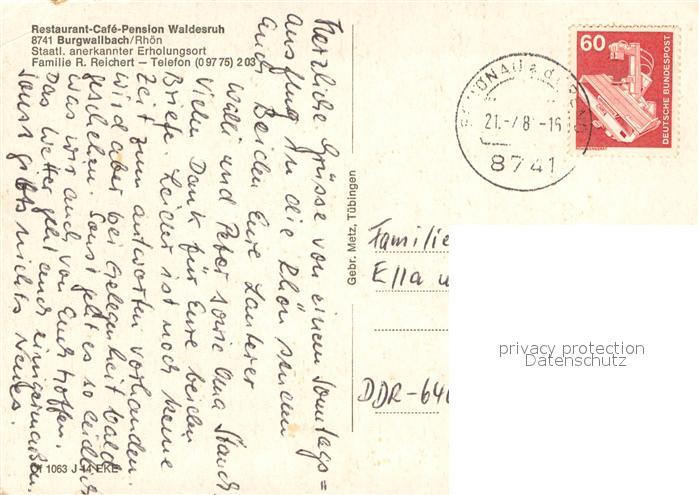 Restaurant-Café-Pension Waldesruh
8741 Burgwallbach/Rhön
Staatl. anerkannter Erholungsort
Familie R. Reichert — Telefon (0 97 75) 2 03
Herzliche Grüsse von einem Sonntags=
ausflug in die Rhön senden
Euch Beiden Eure Lauterer
Walli und Peter sowie Oma
Vielen Dank für Eure beiden
Briefe. Leider ist noch keine
Zeit zum antworten vorhanden.
wird aber bei Gelegenheit bald
geschehen. Sonst geht es so leidlich
was wir auch von Euch hoffen.
Das Wetter geht auch einigermaßen.
sonst gibts nichts Neues.
1063 J 14 EKE
Gebr. Metz, Tübingen
60
DEUTSCHE BUNDESPOST
21.-7.8 -16
8741
Familie
Ella u
DDR-640
privacy protection
Datenschutz